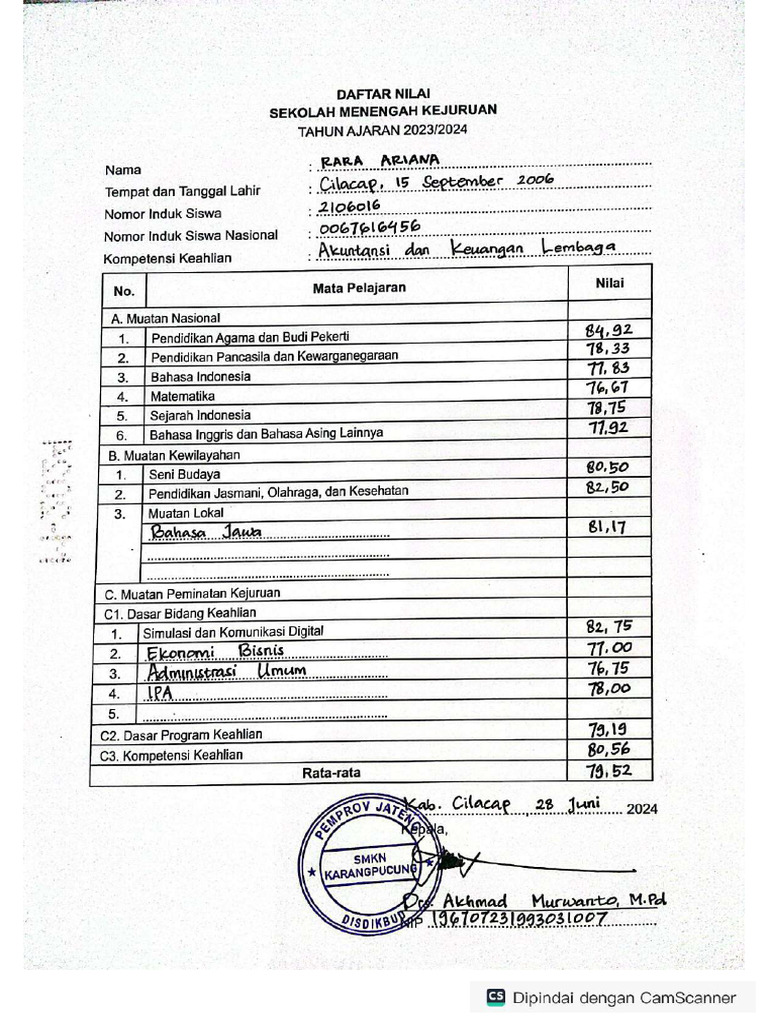 DAFTAR NILAI
SEKOLAH MENENGAH KEJURUAN
TAHUN AJARAN 2023/2024
Nama : RARA ARIANA
Tempat dan Tanggal Lahir : Cilacap, 15 September 2006
Nomor Induk Siswa : 2106016
Nomor Induk Siswa Nasional : 0067616456
Kompetensi Keahlian : Akuntansi dan Keuangan Lembaga
No. Mata Pelajaran Nilai
A. Muatan Nasional
1. Pendidikan Agama dan Budi Pekerti 84,92
2. Pendidikan Pancasila dan Kewarganegaraan 78,33
3. Bahasa Indonesia 77,83
4. Matematika 76,67
5. Sejarah Indonesia 78,75
6. Bahasa Inggris dan Bahasa Asing Lainnya 77,92
B. Muatan Kewilayahan
1. Seni Budaya 80,50
2. Pendidikan Jasmani, Olahraga, dan Kesehatan 82,50
3. Muatan Lokal
Bahasa Jawa 81,17
C. Muatan Peminatan Kejuruan
C1. Dasar Bidang Keahlian
1. Simulasi dan Komunikasi Digital 82,75
2. Ekonomi Bisnis 77,00
3. Administrasi Umum 76,75
4. IPA 78,00
5.
C2. Dasar Program Keahlian 79,19
C3. Kompetensi Keahlian 80,56
Rata-rata 79,52
Kab. Cilacap, 28 Juni 2024
Kepala,
PEMPROV JATENG
SMKN
KARANGPUCUNG
DISDIKBUD
Drs. Akhmad Murwanto, M.Pd
NIP 196707231993031007
CS Dipindai dengan CamScanner